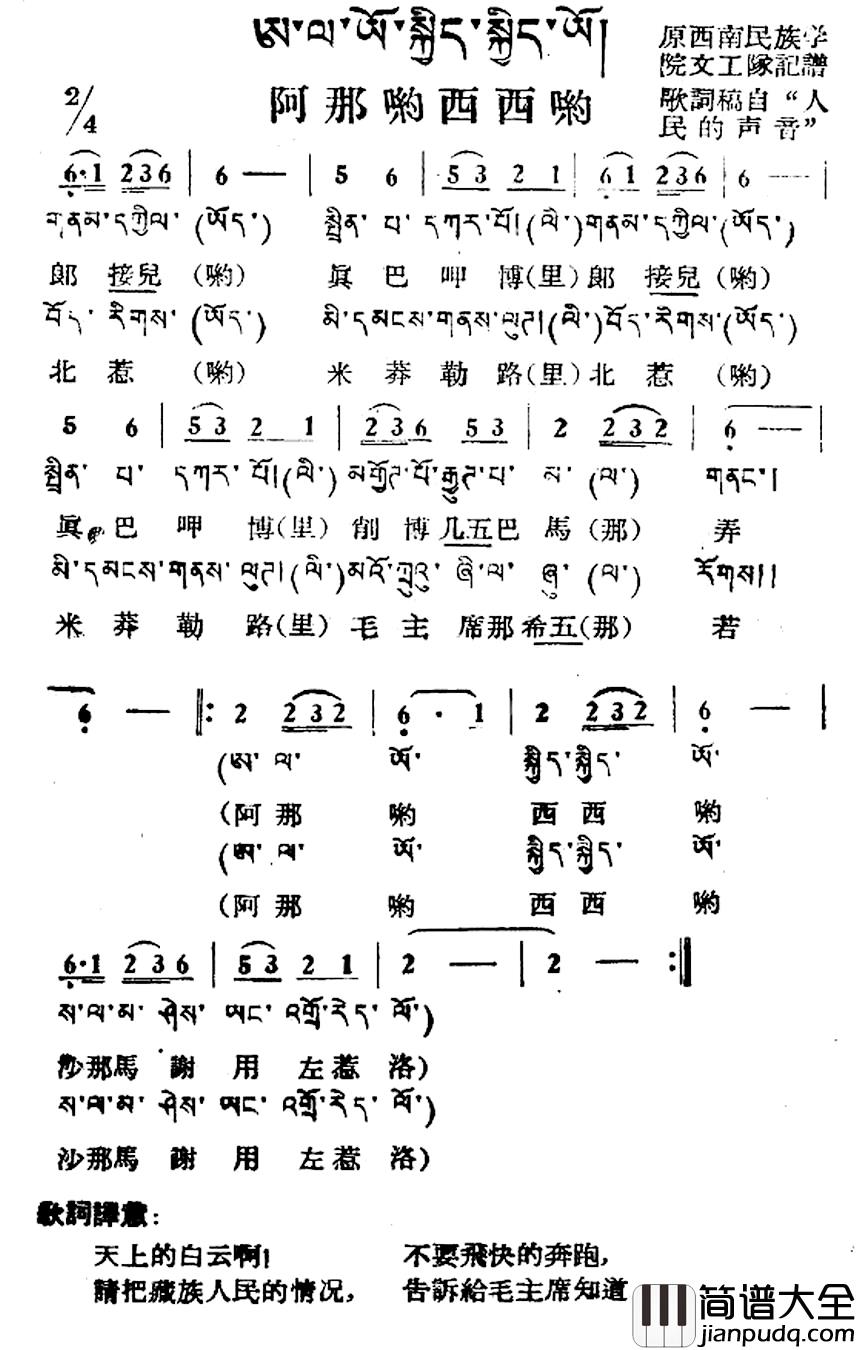 ཨ་ལ་ཡོ་སྐྱིད་སྐྱིད་ཡོ།
阿那喲西西喲
原西南民族学
院文工隊記譜
歌詞稿自“人
民的声音”
2/4
6·1 236 | 6 — | 5 6 | 53 2 1 | 61 236 | 6 — |
གནམ་དཀྱིལ་(ཡོད་) སྤྲིན་པ་དཀར་པོ།(ལི་)གནམ་དཀྱིལ་(ཡོད་)
郞接兒(喲) 眞巴呷博(里)郞接兒(喲)
བོད་རིགས་(ཡོད་) མི་དམངས་གནས་ལུཊ།(ལི་)བོད་རིགས་(ཡོད་)
北惹(喲) 米莽勒路(里)北惹(喲)
5 6 | 53 2 1 | 236 53 | 2 232 | 6 — |
སྤྲིན་པ་དཀར་པོ།(ལི་)མ་(ལ་)གནང་།
眞巴呷博(里)削博几五巴馬(那)弄
མི་དམངས་གནས་ལུཊ།(ལི་)མའོ་ཀྲུའུ་ཞི་ལ་ཞུ་(ལ་)རོགས།།
米莽勒路(里)毛主席那希五(那)若
6 — |: 2 232 | 6 · 1 | 2 232 | 6 — |
(ཨ་ལ་ཡོ་སྐྱིད་སྐྱིད་ཡོ་
(阿那喲西西喲
(ཨ་ལ་ཡོ་སྐྱིད་སྐྱིད་ཡོ་
(阿那喲西西喲
6·1 236 | 53 2 1 | 2 — | 2 — :|
ས་ལ་མ་ཤེས་ཡང་འགྲོ་རེད་ལོ་)
沙那馬謝用左惹洛)
ས་ལ་མ་ཤེས་ཡང་འགྲོ་རེད་ལོ་)
沙那馬謝用左惹洛)
歌詞譯意:
天上的白云啊! 不要飛快的奔跑,
請把藏族人民的情况, 告訴給毛主席知道
简谱大全
jianpudq.com